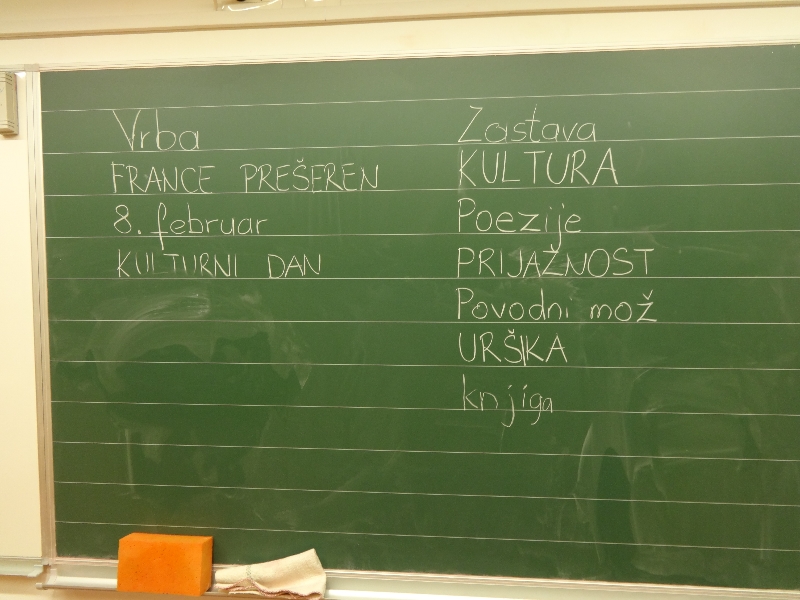 Vrba
FRANCE PREŠEREN
8. februar
KULTURNI DAN
Zastava
KULTURA
Poezije
PRIJAŽNOST
Povodni mož
URŠKA
knjiga